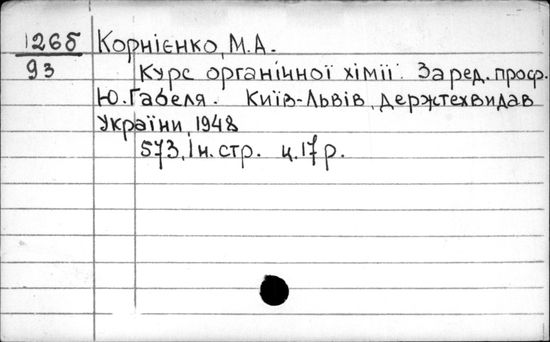 126б Корнієнко, М.А.
93 Курс органічної хімії. За ред. проф.
Ю. Габеля. Київ-Львів, держтехвидав
України, 1948
573, I н. стр. ц. 17 р.